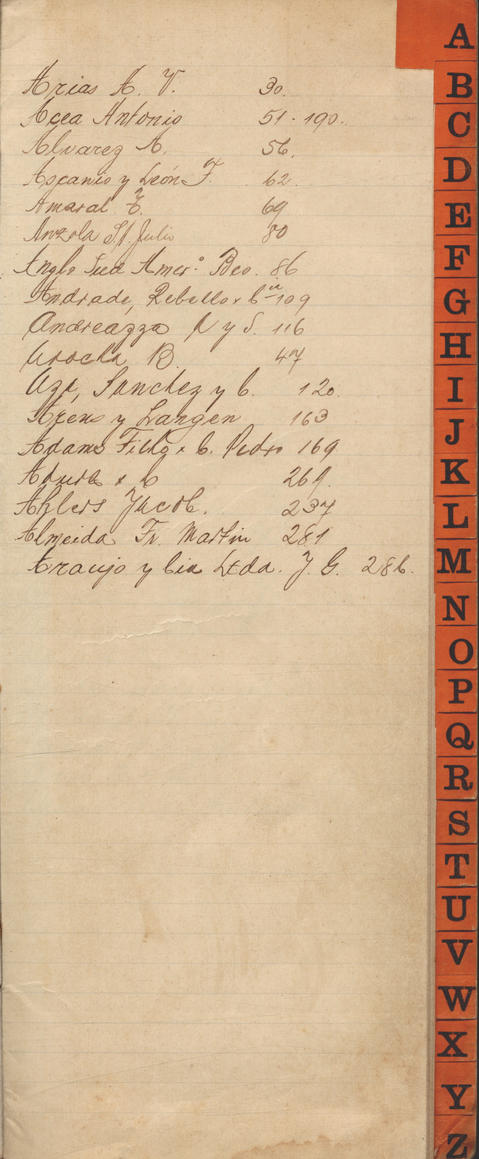 A
Arias A. V. 30.
Acea Antonio 51. 190.
Alvarez A. 56.
Ascanio y León F. 62.
Amaral F. 69
Anzola Julio 80
Anglo Sud Amer.º Bco. 86
Andrade, Rebello & Cia 109
Andreazza N y S. 116
Arocha B. 47
Aza, Sanchez y C. 120.
Arens y Langen 163
Adams Filho & C. Pedro 169
& C 269.
Ahlers Jacob. 237
Almeida Fr. Martin 281
Araujo y Cia Ltda. J. G. 286.
B
C
D
E
F
G
H
I
J
K
L
M
N
O
P
Q
R
S
T
U
V
W
X
Y
Z